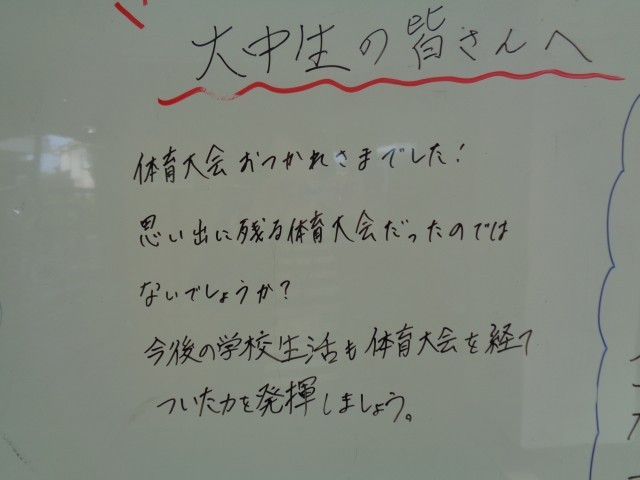 大中生の皆さんへ
体育大会おつかれさまでした!
思い出に残る体育大会だったのでは
ないでしょうか?
今後の学校生活も体育大会を経て
ついた力を発揮しましょう。